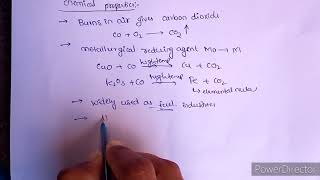 chemical properties:-
→ Burns in air gives carbon dioxide
CO + O₂ → CO₂ ↑
→ metallurgical reducing agent MO → M
CuO + CO high temp→ Cu + CO₂
Fe₂O₃ + CO high temp→ Fe + CO₂
→ widely used as fuel industries
→
PowerDirector